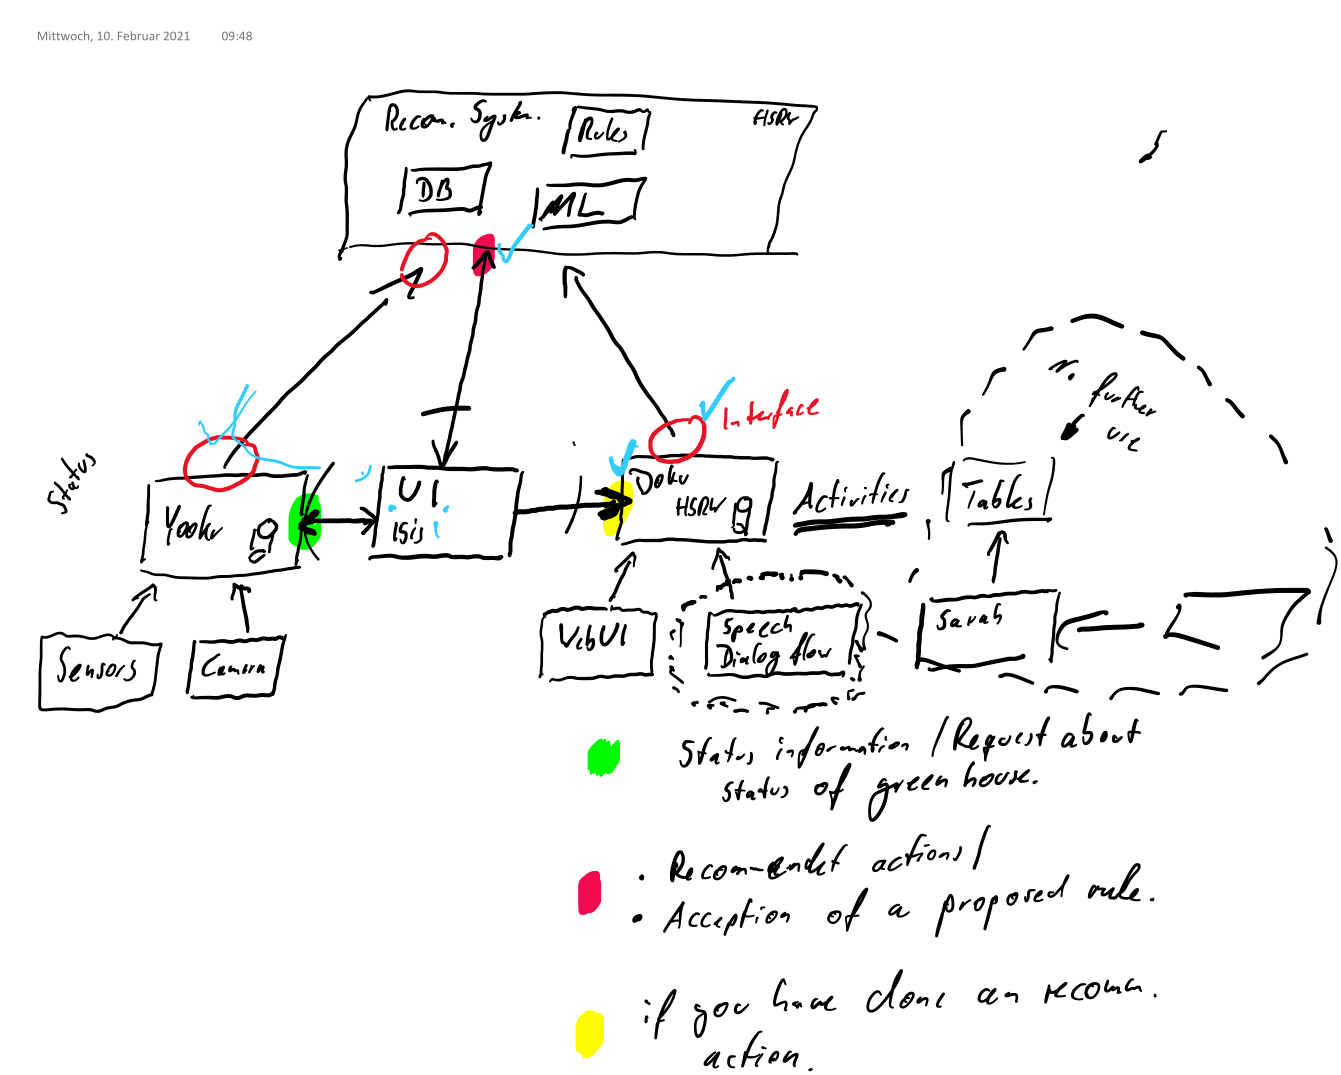 Mittwoch, 10. Februar 2021 09:48
Recom. System.
Rules
HSRW
DB
ML
Interface
further
use
Status
Yookr
UI
Isis
Doku
HSRW
Activities
Tables
Sensors
Camera
WebUI
Speech
Dialog flow
Sarah
Status information / Request about
status of green house.
• Recom-endet actions /
• Acception of a proposed rule.
if you have done an recomm.
action.